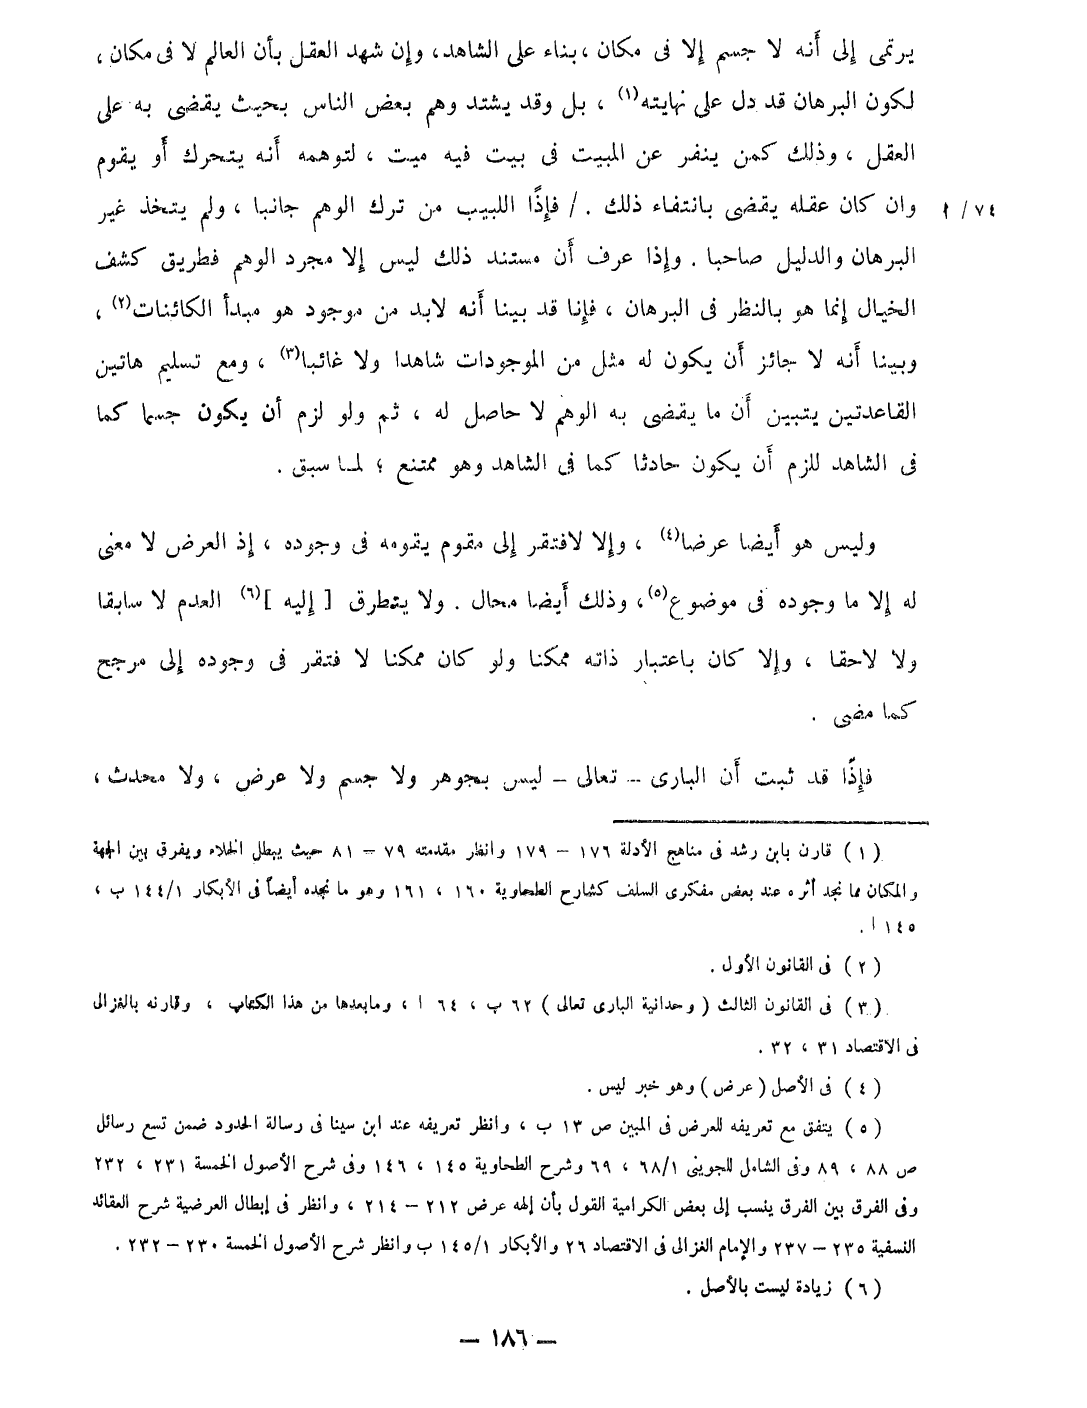 يرتمى إلى أَنه لا جسم إلا فى مكان ، بناء على الشاهد ، وإن شهد العقل بأن العالم لا فى مكان ،
لكون البرهان قد دل على نهايته(١) ، بل وقد يشتد وهم بعض الناس بحيث يقضى به على
العقل ، وذلك كمن ينفر عن المبيت فى بيت فيه ميت ، لتوهمه أَنه يتحرك أَو يقوم
وان كان عقله يقضى بانتفاء ذلك . / فإِذًا اللبيب من ترك الوهم جانبا ، ولم يتخذ غير ٧٤ / ا
البرهان والدليل صاحبا . وإذا عرف أَن مستند ذلك ليس إلا مجرد الوهم فطريق كشف
الخيال إنما هو بالنظر فى البرهان ، فإنا قد بينا أَنه لابد من موجود هو مبدأ الكائنات(٢) ،
وبينا أَنه لا جائز أَن يكون له مثل من الموجودات شاهدا ولا غائبا(٣) ، ومع تسليم هاتين
القاعدتين يتبين أَن ما يقضى به الوهم لا حاصل له ، ثم ولو لزم أن يكون جسما كما
فى الشاهد للزم أَن يكون حادثا كما فى الشاهد وهو ممتنع ؛ لما سبق .
وليس هو أَيضا عرضا(٤) ، وإلا لافتقر إلى مقوم يقومه فى وجوده ، إذ العرض لا معنى
له إلا ما وجوده فى موضوع(٥) ، وذلك أَيضا محال . ولا يتطرق [ إليه ](٦) العدم لا سابقا
ولا لاحقا ، وإلا كان باعتبار ذاته ممكنا ولو كان ممكنا لا فتقر فى وجوده إلى مرجح
كما مضى .
فإِذًا قد ثبت أَن البارى – تعالى – ليس بجوهر ولا جسم ولا عرض ، ولا محدث ،
( ١ ) قارن بابن رشد فى مناهج الأدلة ١٧٦ – ١٧٩ وانظر مقدمته ٧٩ – ٨١ حيث يبطل الخلاء ويفرق بين الجهة
والمكان مما نجد أثره عند بعض مفكرى السلف كشارح الطحاوية ١٦٠ ، ١٦١ وهو ما نجده أيضاً فى الأبكار ١٤٤/١ ب ،
١٤٥ ا .
( ٢ ) فى القانون الأول .
( ٣ ) فى القانون الثالث ( وحدانية البارى تعالى ) ٦٢ ب ، ٦٤ ا ، ومابعدها من هذا الكتاب ، وقارنه بالغزالى
فى الاقتصاد ٣١ ، ٣٢ .
( ٤ ) فى الأصل ( عرض ) وهو خبر ليس .
( ٥ ) يتفق مع تعريفه للعرض فى المبين ص ١٣ ب ، وانظر تعريفه عند ابن سينا فى رسالة الحدود ضمن تسع رسائل
ص ٨٨ ، ٨٩ وفى الشامل للجوينى ٦٨/١ ، ٦٩ وشرح الطحاوية ١٤٥ ، ١٤٦ وفى شرح الأصول الخمسة ٢٣١ ، ٢٣٢
وفى الفرق بين الفرق ينسب إلى بعض الكرامية القول بأن إلهه عرض ٢١٢ – ٢١٤ ، وانظر فى إبطال العرضية شرح العقائد
النسفية ٢٣٥ – ٢٣٧ والإمام الغزالى فى الاقتصاد ٢٦ والأبكار ١٤٥/١ ب وانظر شرح الأصول الخمسة ٢٣٠ – ٢٣٢ .
( ٦ ) زيادة ليست بالأصل .
– ١٨٦ –